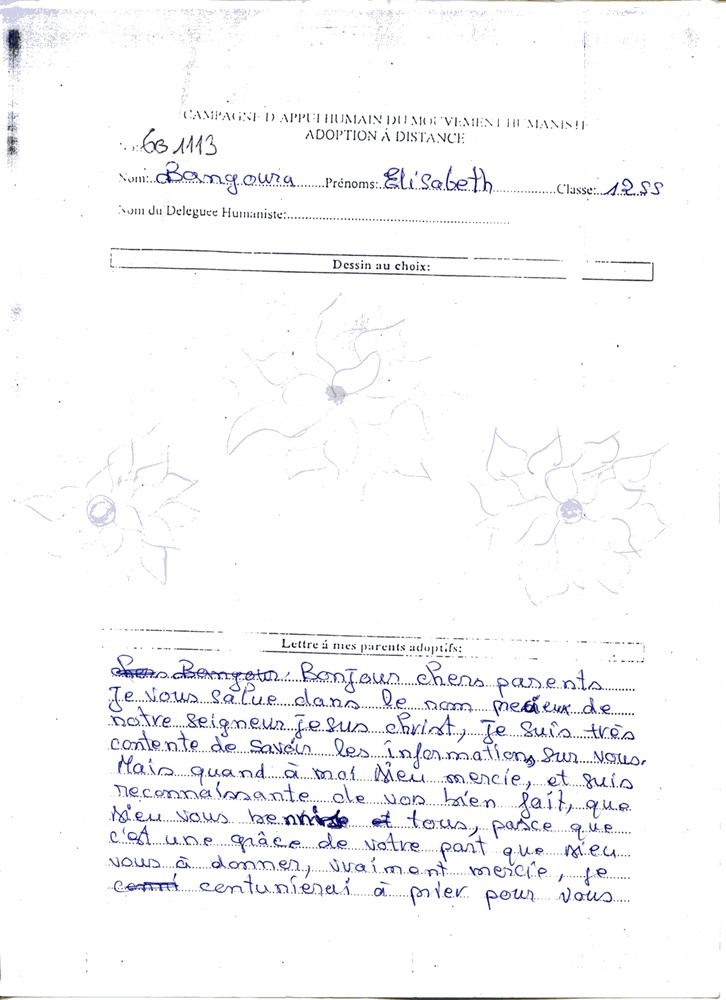 CAMPAGNE D'APPUI HUMAIN DU MOUVEMENT HUMANISTE
ADOPTION À DISTANCE
GB 1113
Nom: Bangoura Prénoms: Elisabeth Classe: 12 SS
Nom du Deleguee Humaniste:
Dessin au choix:
Lettre á mes parents adoptifs:
chers Bangour. Bonjour chers parents
Je vous salue dans le nom precieux de
notre seigneur Jesus christ, Je suis très
contente de savoir les informations sur vous.
Mais quand à moi Dieu mercie, et suis
reconnaissante de vos bien fait, que
Dieu vous bennise et tous, pasce que
c'est une grâce de votre part que Dieu
vous à donner, vraiment mercie, je
conni centunierai à prier pour vous